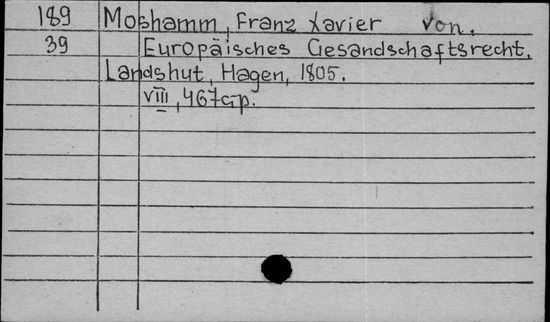 189 Moshamm, Franz Xavier von.
39 Europäisches Gesandschaftsrecht,
Landshut, Hagen, 1805.
VIII, 467 стр.